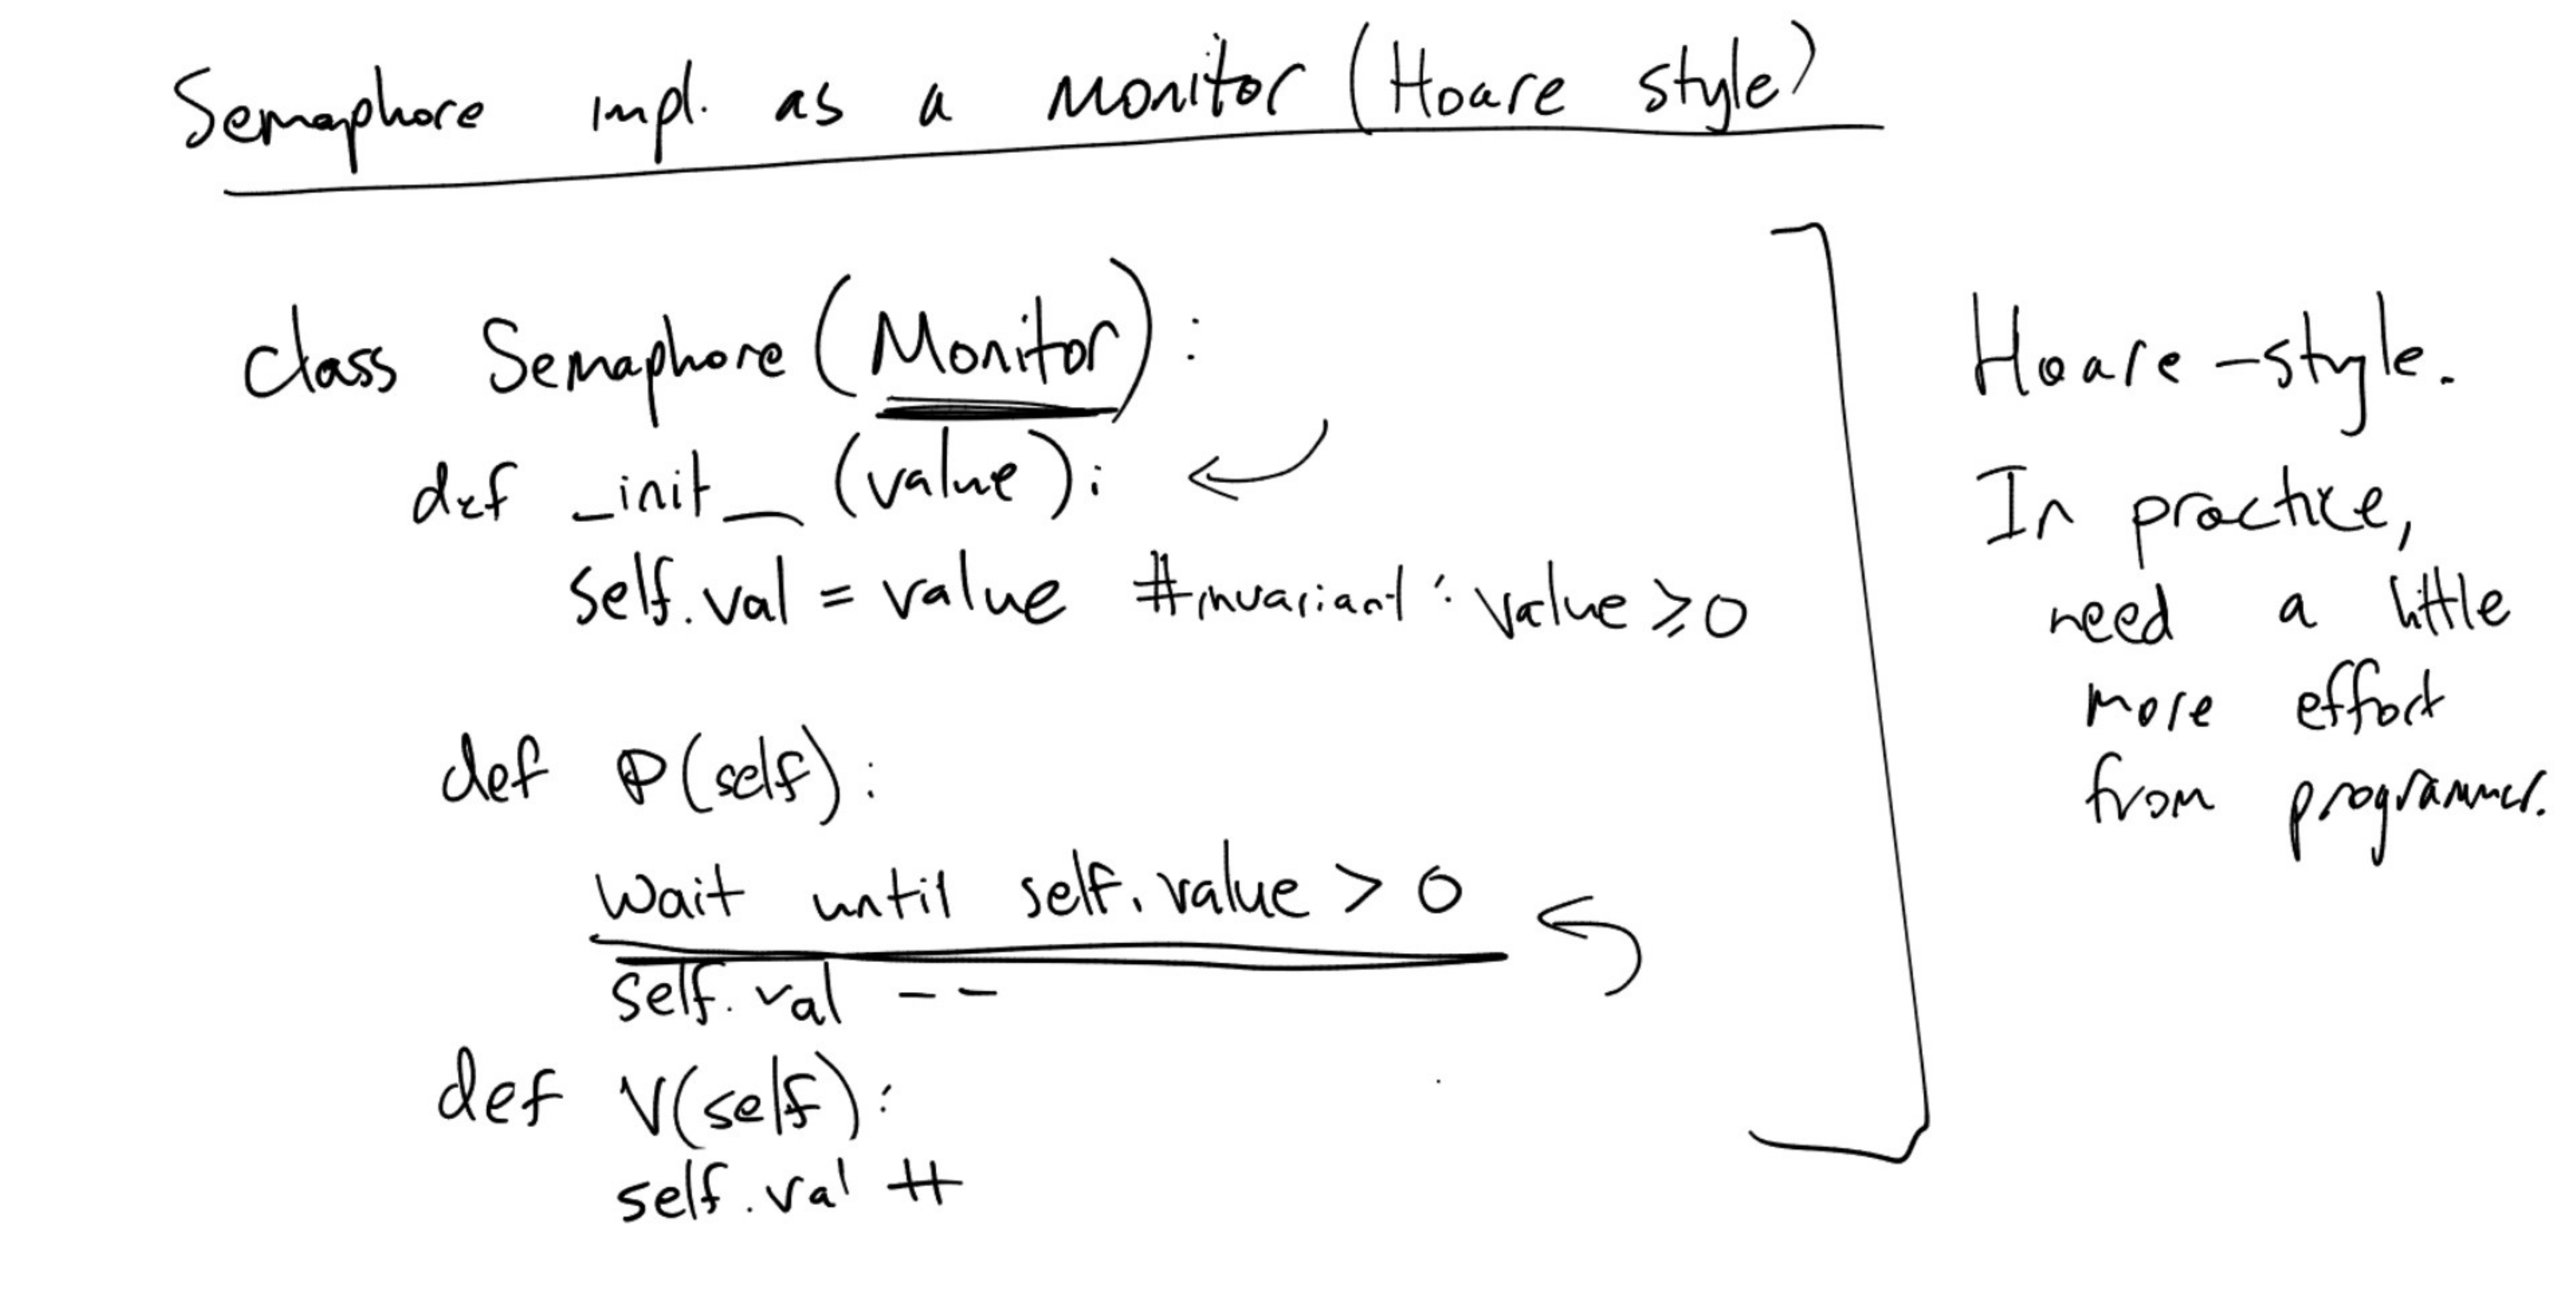 Semaphore impl. as a Monitor (Hoare style)
class Semaphore (Monitor):
def _init_ (value):
self.val = value #invariant: value ≥ 0
def P(self):
Wait until self.value > 0
self.val --
def V(self):
self.val ++
Hoare-style.
In practice,
need a little
more effort
from programmer.